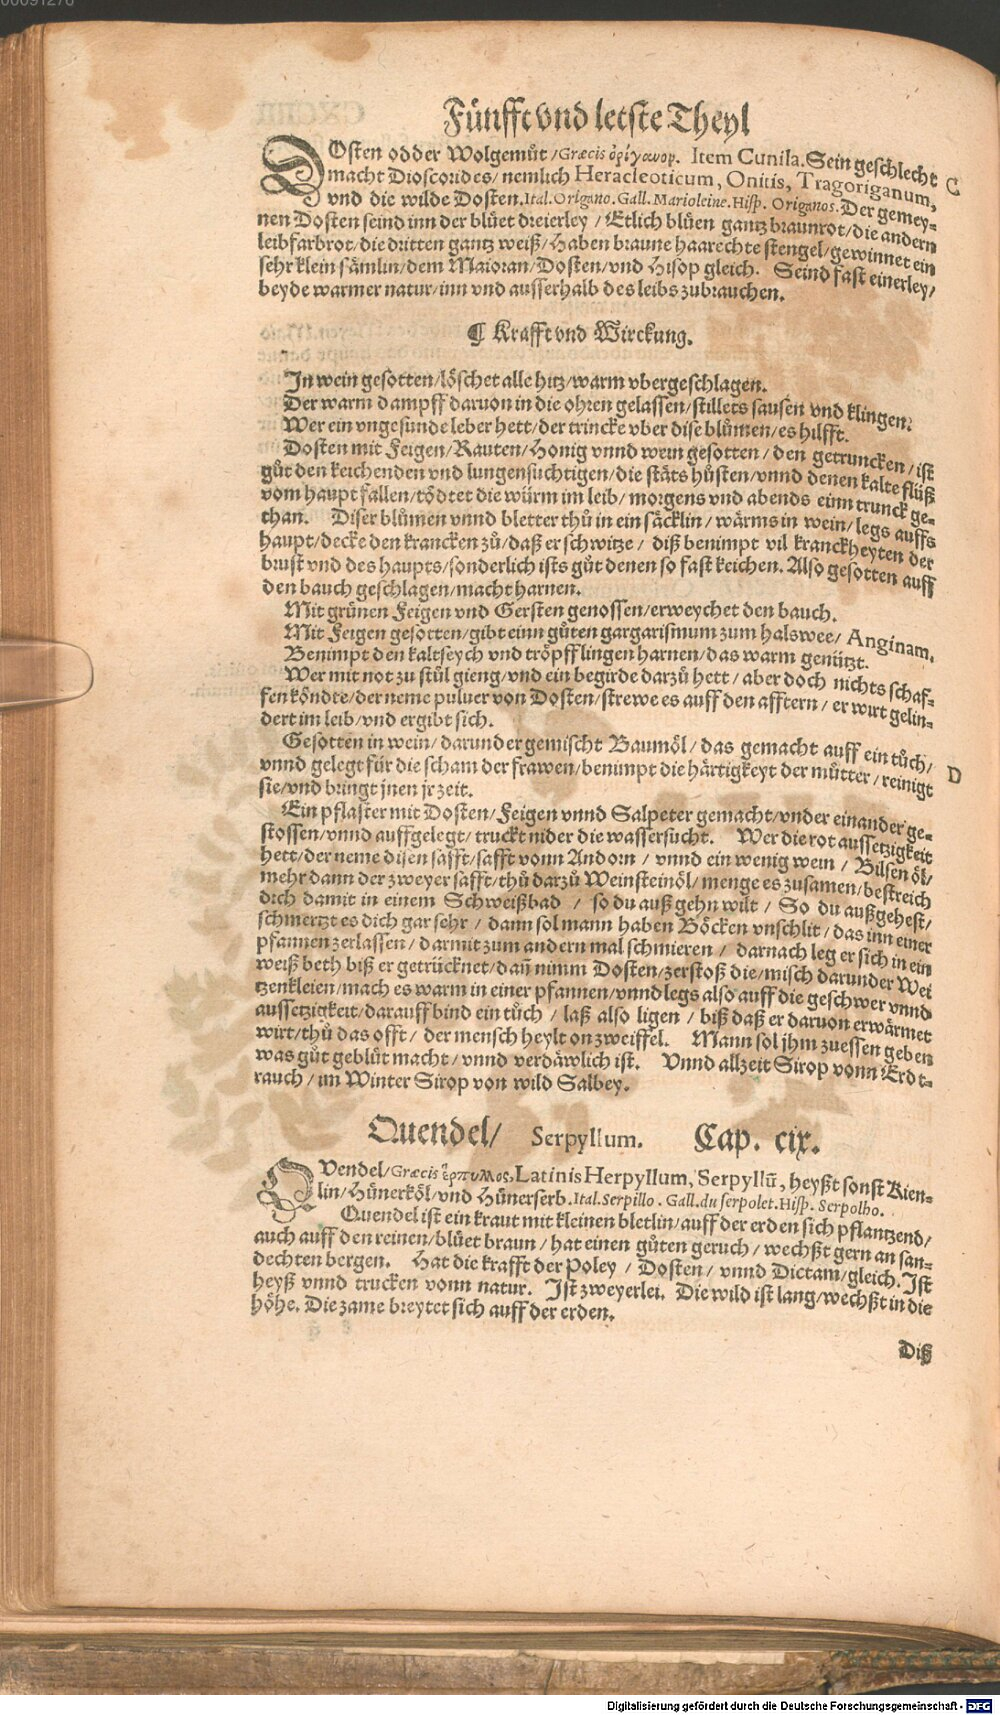 00091276
Fünfft vnd letste Theyl
DOsten odder Wolgemůt/Græcis ὀρίγανος. Item Cunila. Sein geschlecht C
macht Dioscorides/nemlich Heracleoticum, Onitis, Tragoriganum,
vnd die wilde Dosten. Ital. Origano. Gall. Marioleine. Hisp. Origanos. Der gemey-
nen Dosten seind inn der blůet dreierley / Etlich blůen gantz braunrot/die andern
leibfarbrot/die dritten gantz weiß/Haben braune haarechte stengel/gewinnet ein
sehr klein sämlin/dem Maioran/Dosten/vnd Hisop gleich. Seind fast einerley/
beyde warmer natur/inn vnd ausserhalb des leibs zubrauchen.
¶ Krafft vnd Wirckung.
In wein gesotten/löschet alle hitz/warm vbergeschlagen.
Der warm dampff daruon in die ohren gelassen/stillets sausen vnd klingen.
Wer ein vngesunde leber hett/der trincke vber dise blůmen/es hilfft.
Dosten mit Feigen/Rauten/Honig vnnd wein gesotten / den getruncken / ist
gůt den keichenden vnd lungensuchtigen/die stäts hůsten/vnnd denen kalte flüß
vom haupt fallen/tödtet die würm im leib/ morgens vnd abends einn trunck ge-
than. Diser blůmen vnnd bletter thů in ein säcklin / wärms in wein/ legs auffs
haupt/decke den krancken zů/daß er schwitze / diß benimpt vil kranckheyten der
brust vnd des haupts/sonderlich ists gůt denen so fast keichen. Also gesotten auff
den bauch geschlagen/macht harnen.
Mit grünen Feigen vnd Gersten genossen/erweychet den bauch.
Mit Feigen gesotten/gibt einn gůten gargarismum zum halswee/ Anginam.
Benimpt den kaltseych vnd tröpfflingen harnen/das warm genützt.
Wer mit not zu stůl gieng/vnd ein begirde darzů hett / aber doch nichts schaf-
fen köndte/der neme puluer von Dosten/strewe es auff den afftern / er wirt gelin-
dert im leib/vnd ergibt sich.
Gesotten in wein/ darunder gemischt Baumöl / das gemacht auff ein tůch/
vnnd gelegt für die scham der frawen/benimpt die härtigkeyt der můtter / reinigt D
sie/vnd bringt jnen jr zeit.
Ein pflaster mit Dosten/ Feigen vnnd Salpeter gemacht/vnder einander ge-
stossen/vnnd auffgelegt/ truckt nider die wassersucht. Wer die rot aussetzigkeit
hett/der neme disen safft/safft vonn Andorn / vnnd ein wenig wein / Bilsen öl/
mehr dann der zweyer safft/thů darzů Weinsteinöl/ menge es zusamen/bestreich
dich damit in einem Schweißbad / so du auß gehn wilt / So du außgehest/
schmertzt es dich gar sehr / dann sol mann haben Böcken vnschlit / das inn einer
pfannen zerlassen / darmit zum andern mal schmieren / darnach leg er sich in ein
weiß beth biß er getrücknet/dañ nimm Dosten/zerstoß die/misch darunder Wei
tzenkleien/mach es warm in einer pfannen/vnnd legs also auff die geschwer vnnd
aussetzigkeit/darauff bind ein tůch / laß also ligen / biß daß er daruon erwärmet
wirt/thů das offt / der mensch heylt on zweiffel. Mann sol jhm zuessen geben
was gůt geblůt macht / vnnd verdäwlich ist. Vnnd allzeit Sirop vonn Erdt-
rauch / im Winter Sirop von wild Salbey.
Quendel/ Serpyllum. Cap. cix.
QVendel/Græcis ἕρπυλλος, Latinis Herpyllum, Serpyllũ, heyßt sonst Kien-
lin/Hünerköl/vnd Hünerserb. Ital. Serpillo. Gall. du serpolet. Hisp. Serpolho.
Quendel ist ein kraut mit kleinen bletlin/auff der erden sich pflantzend/
auch auff den reinen/blůet braun / hat einen gůten geruch / wechßt gern an san-
dechten bergen. Hat die krafft der Poley / Dosten / vnnd Dictam/gleich. Ist
heyß vnnd trucken vonn natur. Ist zweyerlei. Die wild ist lang/wechßt in die
höhe. Die zame breytet sich auff der erden.
Diß
Digitalisierung gefördert durch die Deutsche Forschungsgemeinschaft - DFG